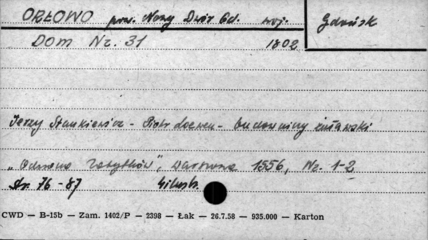 ORŁOWO pow. Nowy Dwór Gd. woj. Gdańsk
Dom Nr. 31 1802
Jerzy Stankiewicz - Piotr Loewen - budowniczy żuławski
„Ochrona Zabytków”, Warszawa 1956, Nr. 1-2
str. 76 - 87 ilustr.
CWD — B-15b — Zam. 1402/P — 2398 — Łak — 26.7.58 — 935.000 — Karton